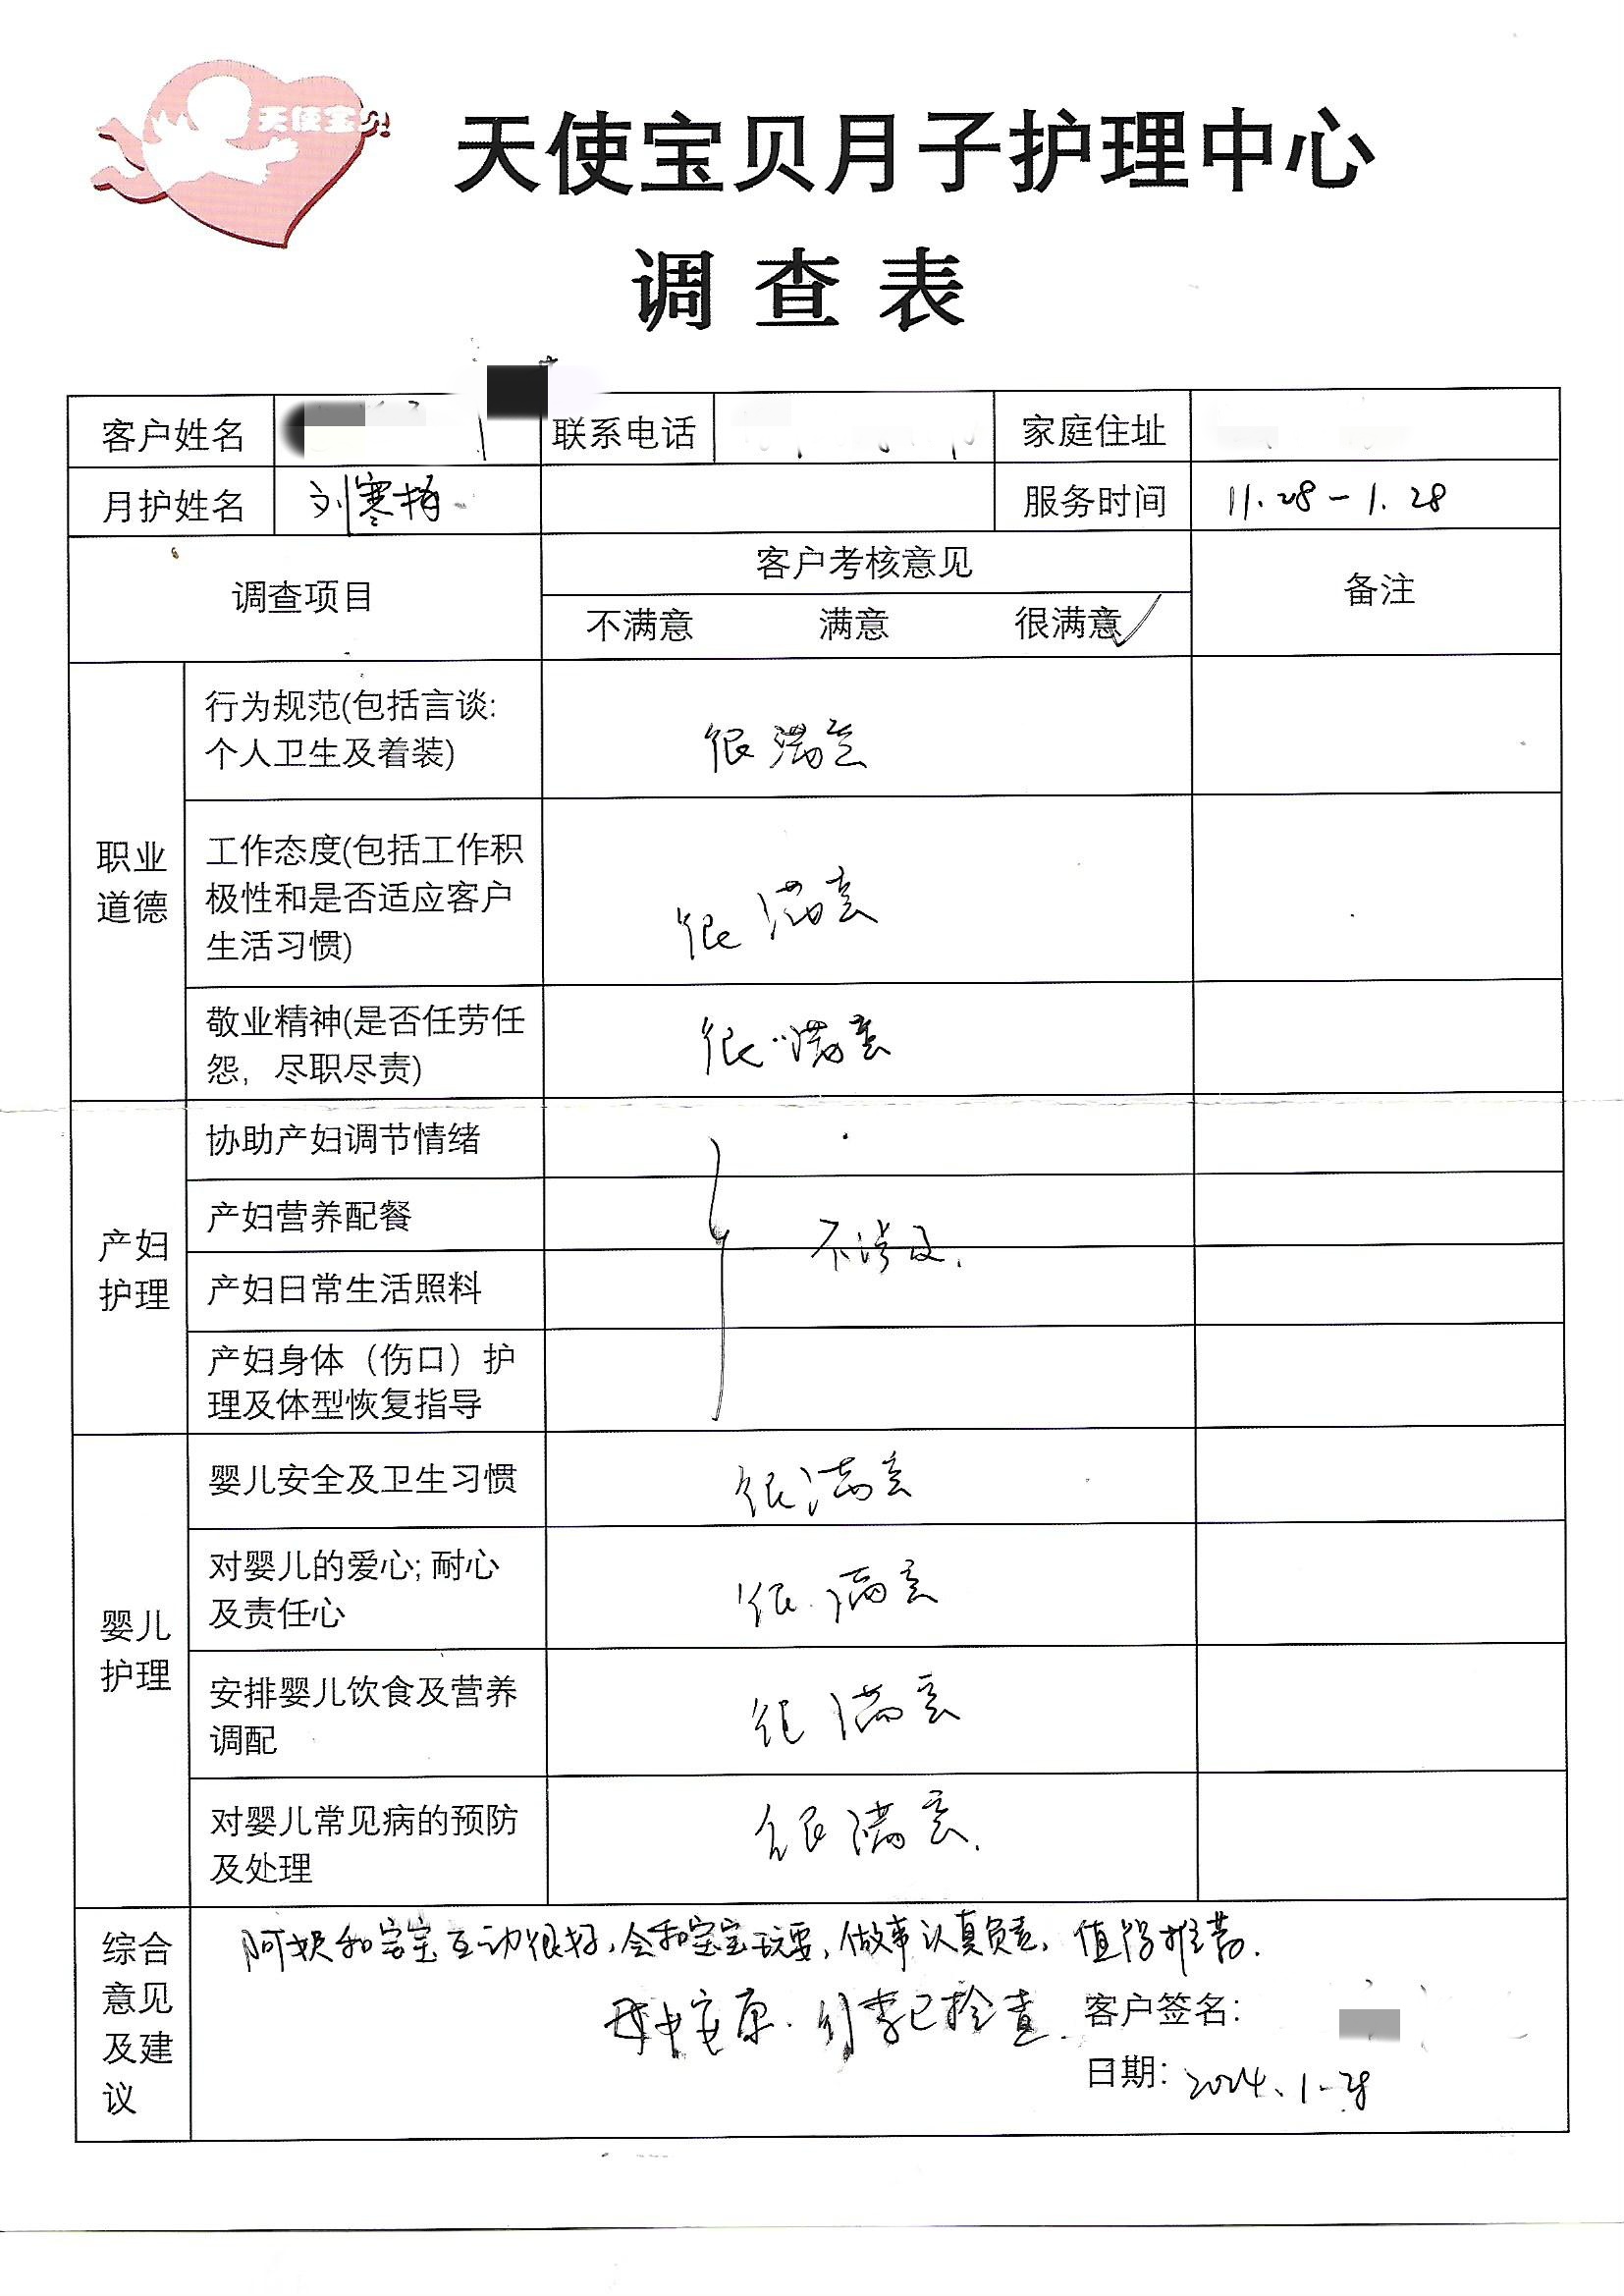 天使宝贝
天使宝贝月子护理中心
调查表
客户姓名 联系电话 家庭住址
月护姓名 刘寒梅 服务时间 11.28-1.28
调查项目 客户考核意见 备注
不满意 满意 很满意✓
职业道德
行为规范(包括言谈:
个人卫生及着装)
很满意
工作态度(包括工作积
极性和是否适应客户
生活习惯)
很满意
敬业精神(是否任劳任
怨，尽职尽责)
很满意
产妇护理
协助产妇调节情绪
产妇营养配餐
不涉及.
产妇日常生活照料
产妇身体（伤口）护
理及体型恢复指导
婴儿护理
婴儿安全及卫生习惯
很满意
对婴儿的爱心; 耐心
及责任心
很满意
安排婴儿饮食及营养
调配
很满意
对婴儿常见病的预防
及处理
很满意.
综合意见及建议
阿姨和宝宝互动很好，会和宝宝玩耍，做事认真负责，值得推荐.
行李已检查.
客户签名:
日期: 2024.1-28